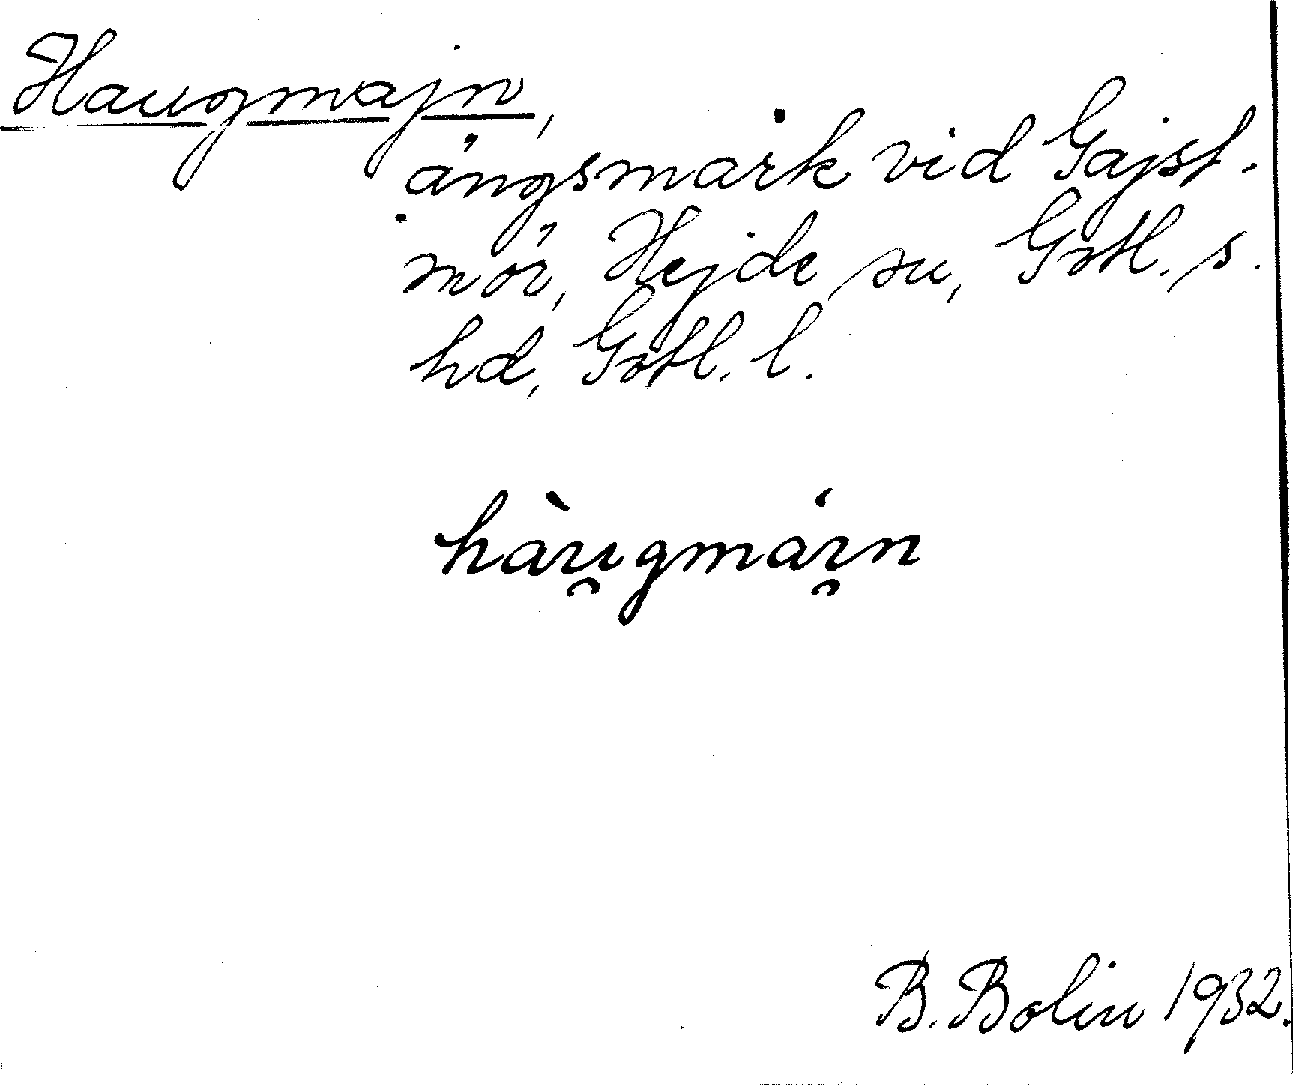 Haugmajn,
ängsmark vid Gajst-
mör, Hejde sn, Gotl. s.
hd, Gotl. l.
hàu̯gmái̯n
B. Bolin 1932.